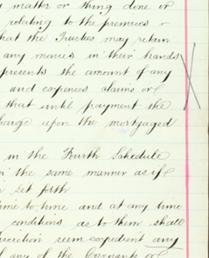 matter or thing done in
relating to the premises or
that the Trustees may retain
any monies in their hands
presents the amount of any
and expences claims or
that until payment the
charge upon the mortgaged
in the Fourth Schedule
in the same manner as if
set forth
time to time and at any time
conditions as to them shall
discretion seem expedient any
of any of the Covenants or